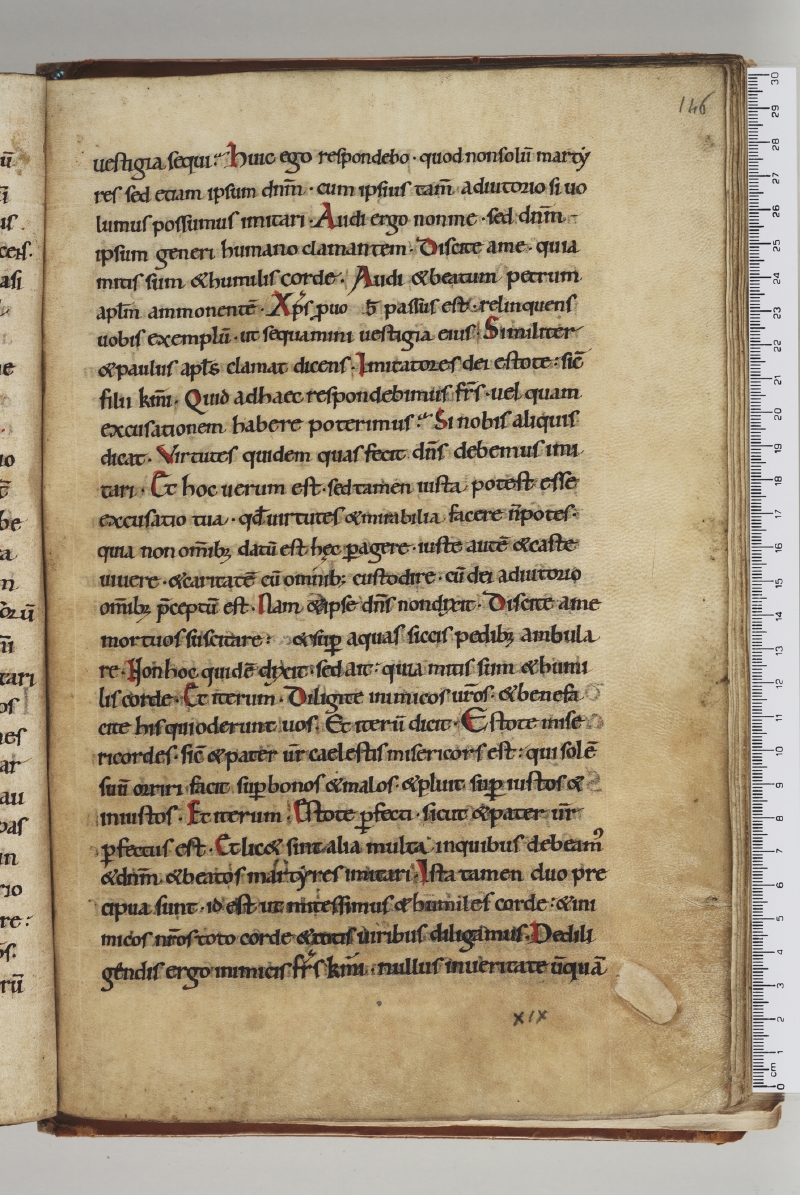 146
uestigia sequi? Huic ego respondebo · quod nonsolū marty
res sed etiam ipsum dn̄m · cum ipsius tam̄ adiutorio si uo
lumus possumus imitari · Audi ergo nonme · sed dn̄m
ipsum generi humano clamantem · Discite ame · quia
mitis sum &humilis corde · Audi &beatum petrum
apl̄m ammonentē · Xp̄s puo passus est · relinquens
uobis exemplū · ut sequamini uestigia eius · Similiter
&paulus apl̄s clamat dicens · Imitatores dei estote : sic̄
filii km̄i · Quid adhaec respondebimus fr̄s · uel quam
excusationem habere poterimus? Si nobis aliquis
dicat · Virtutes quidem quas fecit dn̄s debemus imi
tari · Et hoc uerum est · sed tamen iusta potest esse
excusatio tua · qđ uirtutes &mirabilia facere n̄potes ·
quia non om̄ib; datū est hęc ꝑagere · iuste autē &caste
uiuere · &caritatē cū omnib; custodire · cū dei adiutorio
om̄ib; p̄ceptū est · Nam &ipse dn̄s nondixit · Discite ame
mortuos suscitare : &suꝑ aquas siccis pedib; ambula
re · Nonhoc quidē dixit · sed ait : quia mitis sum &humi
lis corde · Et iterum · Diligite inimicos ur̄os · &benefa
cite his quioderunt uos · Et iterū dicit · Estote mise
ricordes · sic̄ &pater ur̄ caelestis misericors est : qui solē
suū oriri facit suꝑ bonos &malos · &pluit suꝑ iustos &
iniustos · Et iterum · Estote ꝑfecti · sicut &pater ur̄
ꝑfectus est · Etlic& sint alia multa inquibus debeam᾽
&dn̄m &beatos martyres imitari · Ista tamen duo pre
cipua sunt · id est ut mitessimus &humiles corde : &ini
micos nr̄os toto corde &totis uiribus diligamus · Dedili
gendis ergo inimicis fr̄s km̄i · nullus inueritate ūquā
xix